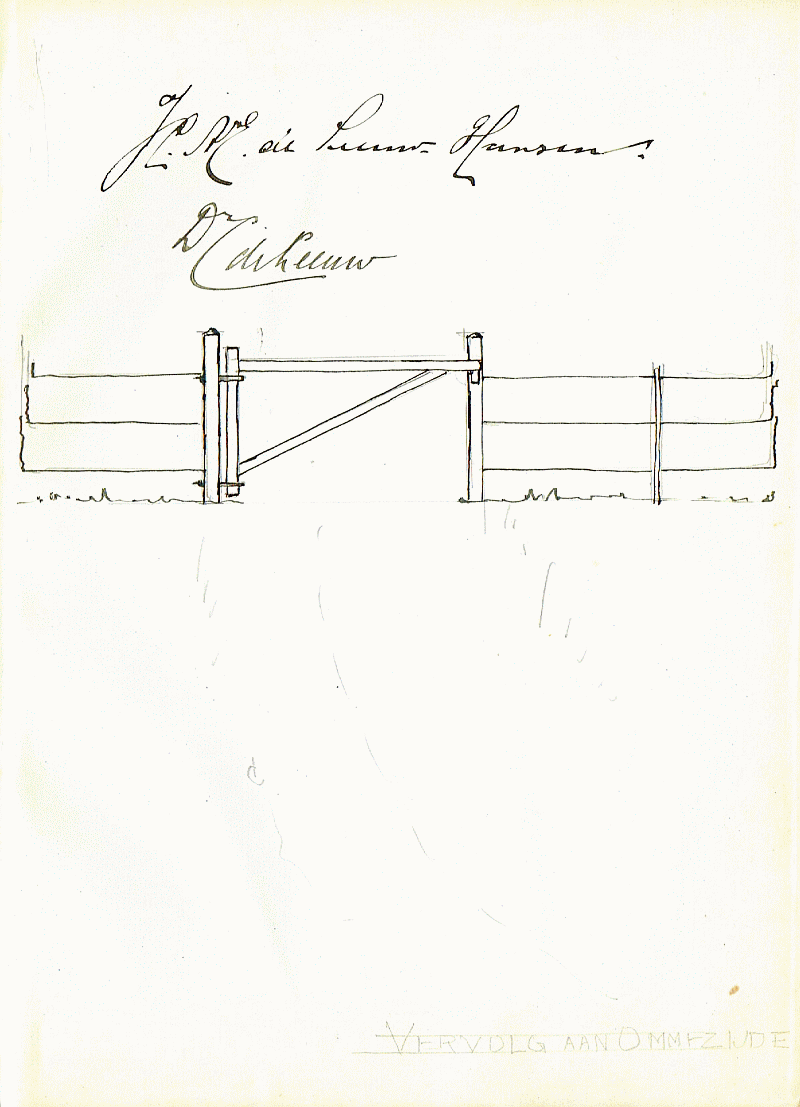 de Leeuw-Hansen.
Drs C de Leeuw
VERVOLG AAN OMMEZIJDE